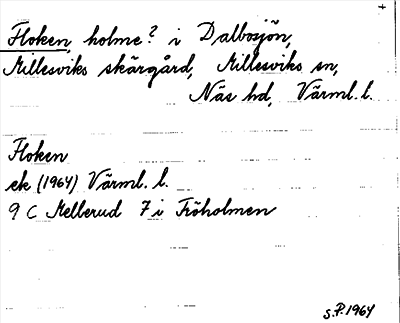 Floken, holme? i Dalbosjön,
Millesviks skärgård, Millesviks sn,
Näs hd, Värml. l.
Floken
ek (1964) Värml. l.
9 C Mellerud 7 i Fröholmen
S.P. 1964